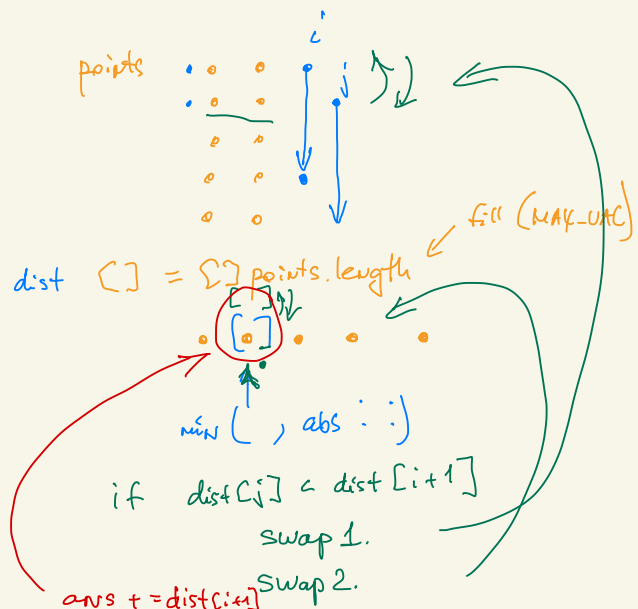 i
points
j
fill (MAX_VAL)
dist [] = [] points.length
[ ]
[ ]
min ( , abs : :)
if dist[j] < dist[i+1]
swap 1.
swap 2.
ans += dist[i+1]